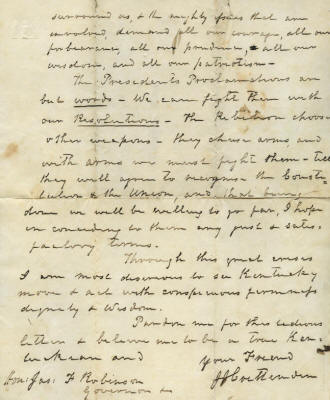 surround us, & the mighty issues that are
involved, demand all our courage, all our
forbearance, all our prudence, all our
wisdom, and all our patriotism—
The Presidents Proclamations are
but words — We can fight them with
our Resolutions — The Rebellion choose
other weapons — they chose arms, and
with arms we must fight them — till
they will agree to recognise the Consti-
tution & the Union, and that being
done we will be willing to go far, I hope
in conceding to them any just & satis-
factory terms.
Through this great crisis
I am most desirous to see Kentucky
move & act with conspicuous firmness
dignity & Wisdom.
Pardon me for this tedious
letter & believe me to be a true Ken-
tuckean and
Your Friend
Hon: Jas: F Robinson
J J Crittenden
Governor &c